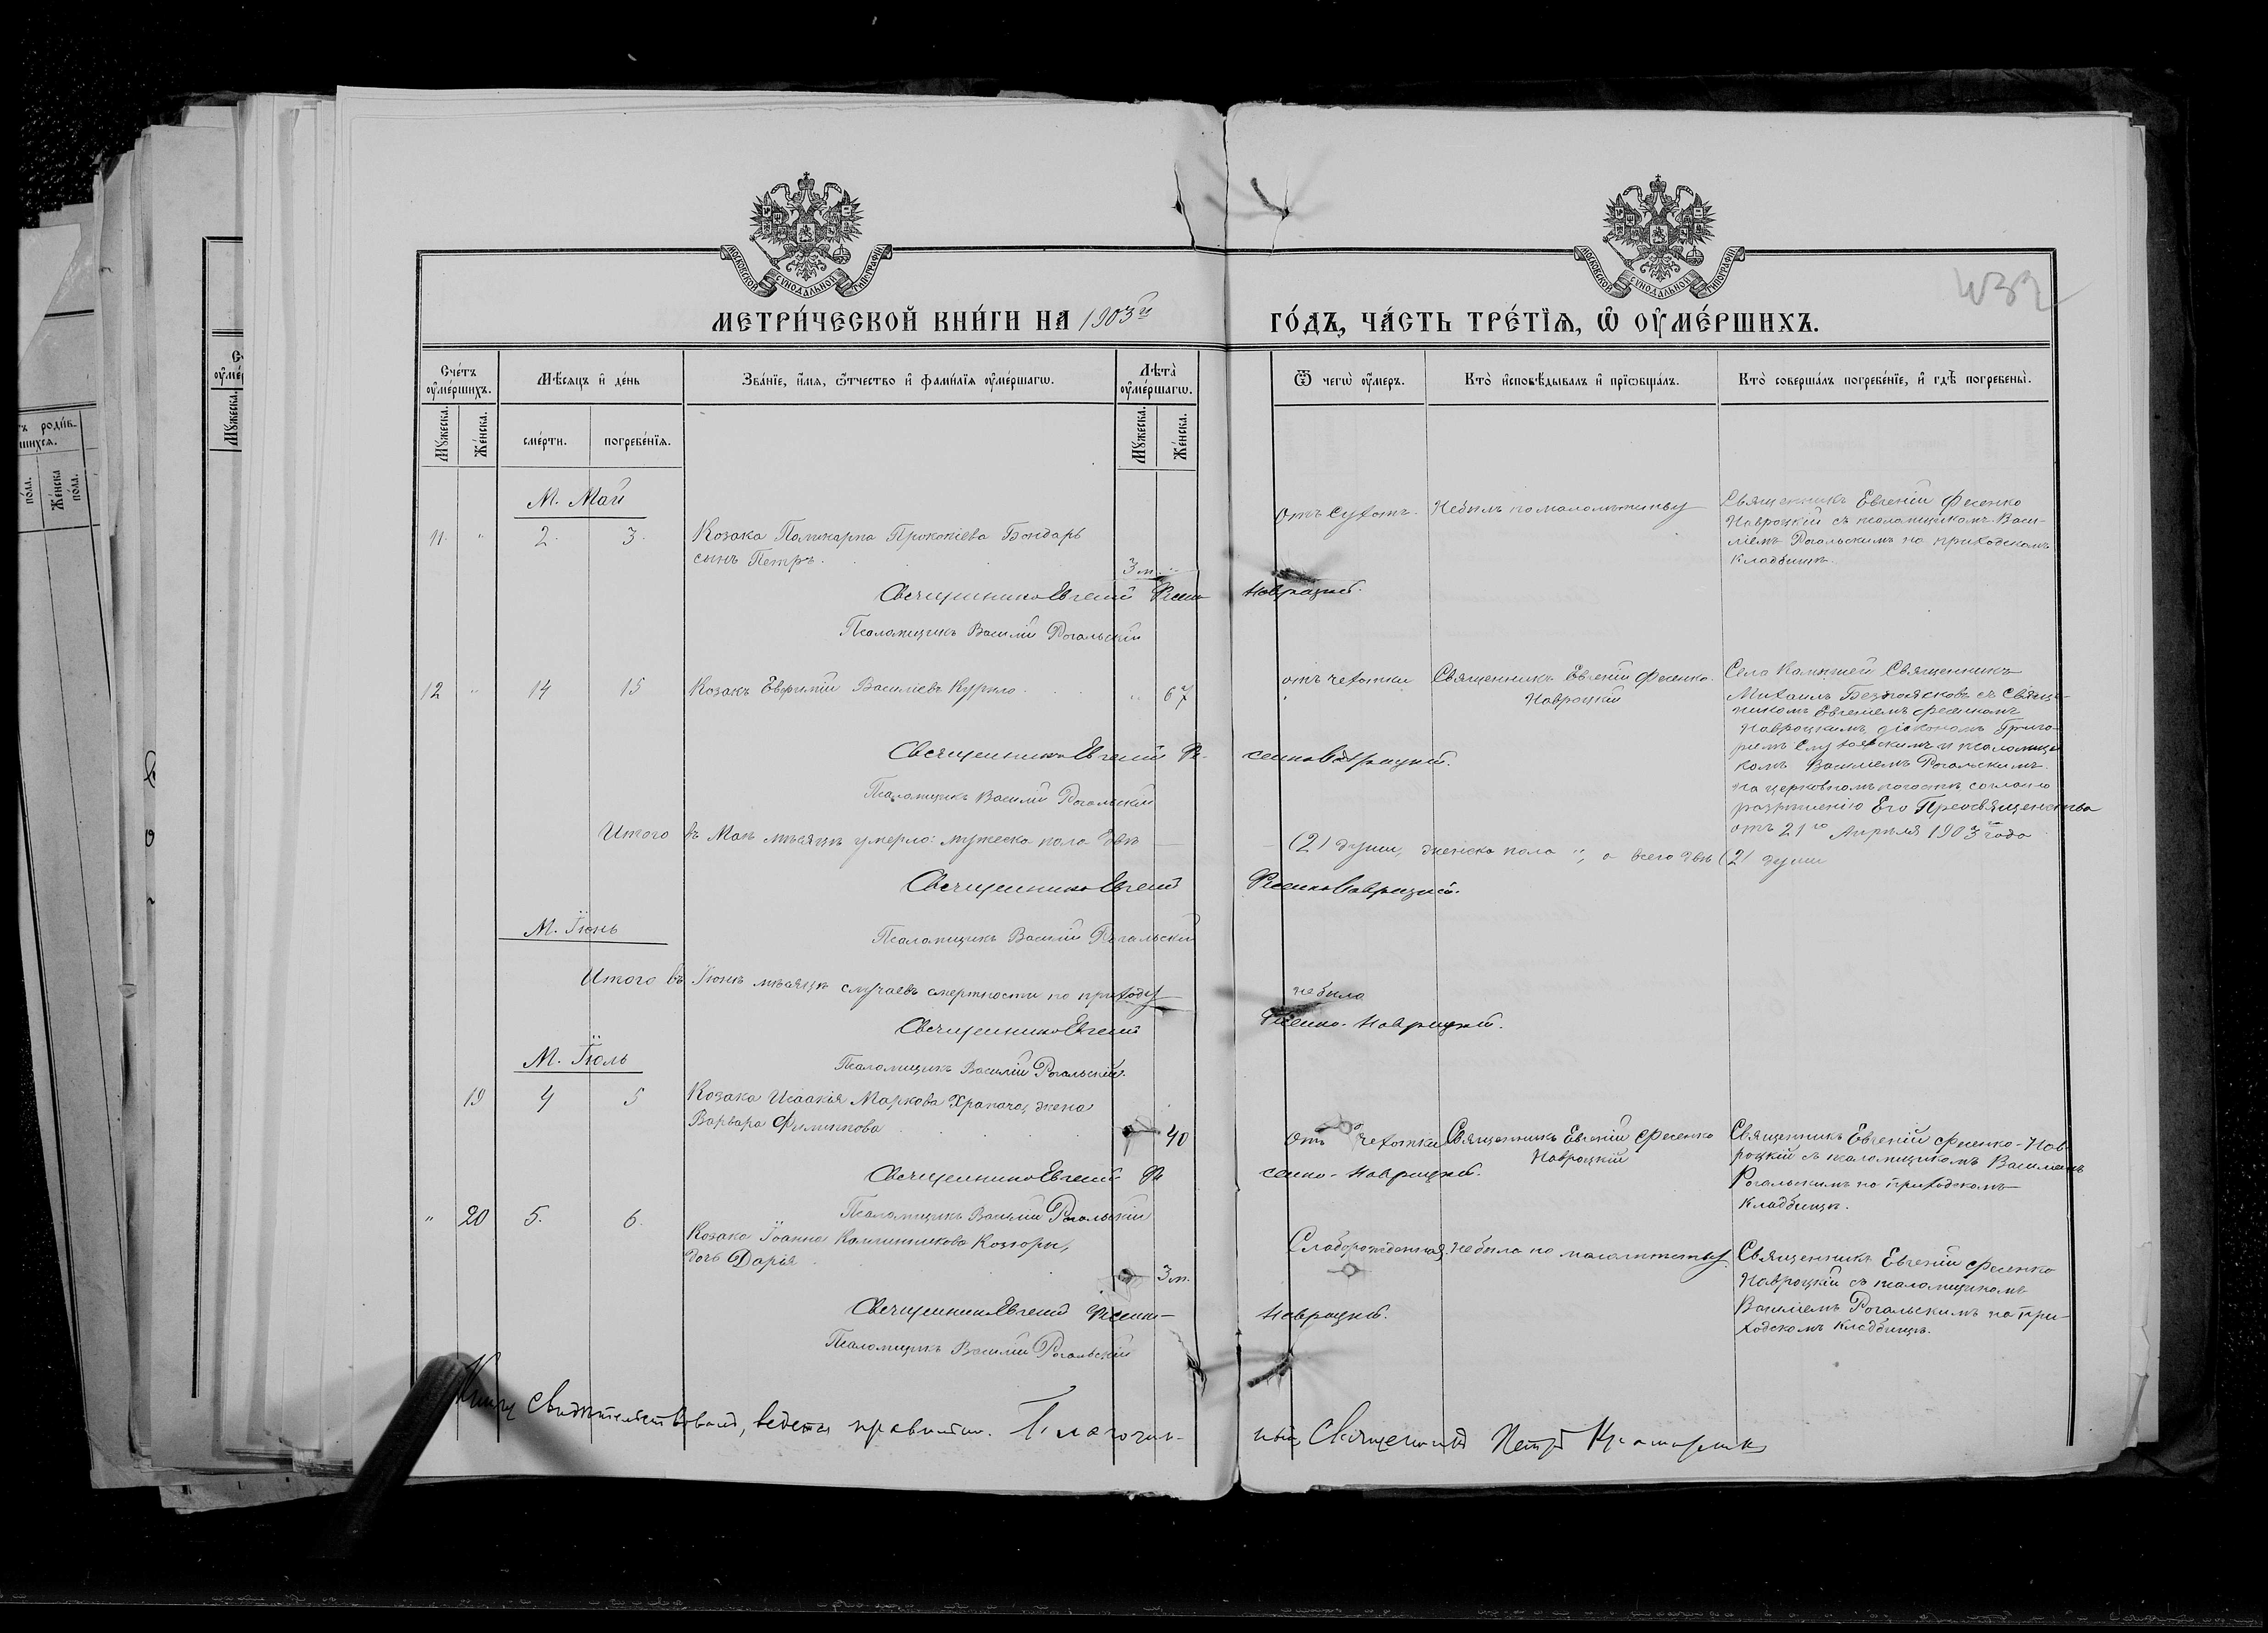 МОСКОВСКОЙ СУНОДАЛЬНОЙ ТИПОГРАФІИ
МОСКОВСКОЙ СУНОДАЛЬНОЙ ТИПОГРАФІИ
432
МЕТРИ́ЧЕСКОЙ КНИ́ГИ НА 1903й ГО́ДЪ, ЧА́СТЬ ТРЕ́ТІѦ, Ѡ ОУ҆МЕ́РШИХЪ.
Сче́тъ оу҆ме́ршихъ.
Мѣ́сяцъ и҆ де́нь
Зва́нїе, и҆́мя, ѻ҆́тчество и҆ фами́лїя оу҆ме́ршагѡ.
Лѣ́та оу҆ме́ршагѡ.
Ѿ чегѡ̀ оу҆́меръ.
Кто̀ и҆сповѣ́дывалъ и҆ прїѡбща́лъ.
Кто̀ соверша́лъ погребе́нїе, и҆ гдѣ̀ погребены̀.
Мꙋ́жеска.
Же́нска.
сме́рти.
погребе́нїя.
Мꙋ́жеска.
Же́нска.
М. Май
11. " 2. 3. Козака Поликарпа Прокопіева Бондарь
сынъ Петръ. 3 м. "
Отъ сухотъ.
Небылъ по малолѣтству
Священникъ Евгеній Фесенко
Навроцкій съ псаломщикомъ Васи-
ліемъ Рогальскимъ на приходскомъ
кладбищѣ.
Священникъ Евгеній Фесенко Навроцкій.
Псаломщикъ Василій Рогальскій
12 " 14 15 Козакъ Евфимій Василіевъ Курило. " 67
отъ чехотки
Священникъ Евгеній Фесенко-
Навроцкій
Села Священникъ
Михаилъ съ Свяще-
никомъ Евгеніемъ Фесенкомъ
Навроцкимъ, діакономъ Григо-
ріемъ и псаломщи-
комъ Василіемъ Рогальскимъ
на церковномъ погостѣ согласно
разрѣшенію Его Преосвященства
отъ 21го Апрѣля 1903 года
Священникъ Евгеній Фесенко Навроцкій.
Псаломщикъ Василій Рогальскій
Итого въ Маѣ мѣсяцѣ умерло: мужеска пола двѣ (2) души, женска пола ", а всего двѣ (2) души
Священникъ Евгеній Фесенко Навроцкій.
М. Іюнь
Псаломщикъ Василій Рогальскій
Итого въ Іюнѣ мѣсяцѣ случаевъ смертности по приходу не было
Священникъ Евгеній Фесенко-Навроцкій.
М. Іюль
Псаломщикъ Василій Рогальскій.
19 4 5 Козака Исаакія Маркова Храпача, жена
Варвара Филиппова 40
Отъ чехотки
Священникъ Евгеній Фесенко
Навроцкій
Священникъ Евгеній Фесенко-Нав-
роцкій съ псаломщикомъ Василіемъ
Рогальскимъ на приходскомъ
кладбищѣ.
Священникъ Евгеній Фесенко-Навроцкій.
Псаломщикъ Василій Рогальскій
" 20 5. 6. Козака Іоанна Каллиникова Козоры,
дочь Дарія 3 м.
Слаборожденная
не была по малолѣтству
Священникъ Евгеній Фесенко
Навроцкій съ псаломщикомъ
Василіемъ Рогальскимъ на при-
ходскомъ кладбищѣ.
Священникъ Евгеній Фесенко-Навроцкій.
Псаломщикъ Василій Рогальскій
Книгу свидѣтельствовалъ, ведется правильно. Благочин-
ный, Священникъ Петръ